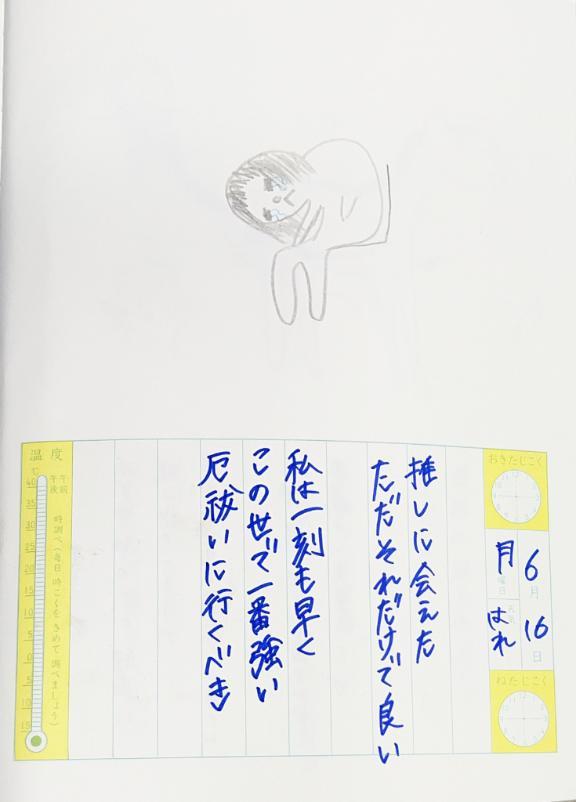 おきたじこく
6月
16日
月曜日
はれ
ねたじこく
推しに会えた
ただそれだけで良い
私は一刻も早く
この世で一番強い
厄祓いに行くべき
温度
℃
午前
午後
時調べ(毎日時こくをきめて調べましょう)
40
35
30
25
20
15
10
5
0
5
10
15